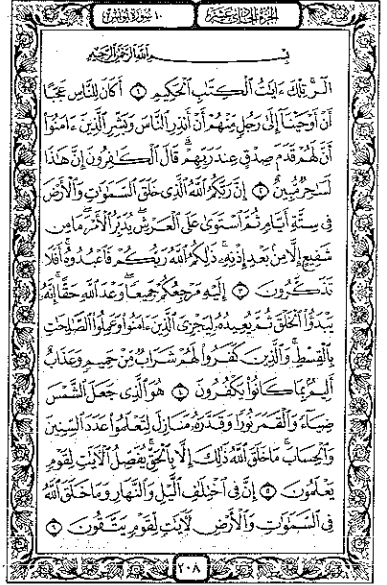 الجزء الحادي عشر
١٠ سورة يونس
بسم الله الرحمن الرحيم
الٓر ۚ تِلْكَ ءَايَٰتُ ٱلْكِتَٰبِ ٱلْحَكِيمِ ١ أَكَانَ لِلنَّاسِ عَجَبًا
أَنْ أَوْحَيْنَآ إِلَىٰ رَجُلٍ مِّنْهُمْ أَنْ أَنذِرِ ٱلنَّاسَ وَبَشِّرِ ٱلَّذِينَ ءَامَنُوٓا۟
أَنَّ لَهُمْ قَدَمَ صِدْقٍ عِندَ رَبِّهِمْ ۗ قَالَ ٱلْكَٰفِرُونَ إِنَّ هَٰذَا
لَسَٰحِرٌ مُّبِينٌ ٢ إِنَّ رَبَّكُمُ ٱللَّهُ ٱلَّذِى خَلَقَ ٱلسَّمَٰوَٰتِ وَٱلْأَرْضَ
فِى سِتَّةِ أَيَّامٍ ثُمَّ ٱسْتَوَىٰ عَلَى ٱلْعَرْشِ ۖ يُدَبِّرُ ٱلْأَمْرَ ۖ مَا مِن
شَفِيعٍ إِلَّا مِنۢ بَعْدِ إِذْنِهِۦ ۚ ذَٰلِكُمُ ٱللَّهُ رَبُّكُمْ فَٱعْبُدُوهُ ۚ أَفَلَا
تَذَكَّرُونَ ٣ إِلَيْهِ مَرْجِعُكُمْ جَمِيعًا ۖ وَعْدَ ٱللَّهِ حَقًّا ۚ إِنَّهُۥ
يَبْدَؤُا۟ ٱلْخَلْقَ ثُمَّ يُعِيدُهُۥ لِيَجْزِىَ ٱلَّذِينَ ءَامَنُوا۟ وَعَمِلُوا۟ ٱلصَّٰلِحَٰتِ
بِٱلْقِسْطِ ۚ وَٱلَّذِينَ كَفَرُوا۟ لَهُمْ شَرَابٌ مِّنْ حَمِيمٍ وَعَذَابٌ
أَلِيمٌۢ بِمَا كَانُوا۟ يَكْفُرُونَ ٤ هُوَ ٱلَّذِى جَعَلَ ٱلشَّمْسَ
ضِيَآءً وَٱلْقَمَرَ نُورًا وَقَدَّرَهُۥ مَنَازِلَ لِتَعْلَمُوا۟ عَدَدَ ٱلسِّنِينَ
وَٱلْحِسَابَ ۚ مَا خَلَقَ ٱللَّهُ ذَٰلِكَ إِلَّا بِٱلْحَقِّ ۚ يُفَصِّلُ ٱلْءَايَٰتِ لِقَوْمٍ
يَعْلَمُونَ ٥ إِنَّ فِى ٱخْتِلَٰفِ ٱلَّيْلِ وَٱلنَّهَارِ وَمَا خَلَقَ ٱللَّهُ
فِى ٱلسَّمَٰوَٰتِ وَٱلْأَرْضِ لَءَايَٰتٍ لِّقَوْمٍ يَتَّقُونَ ٦
٢٠٨